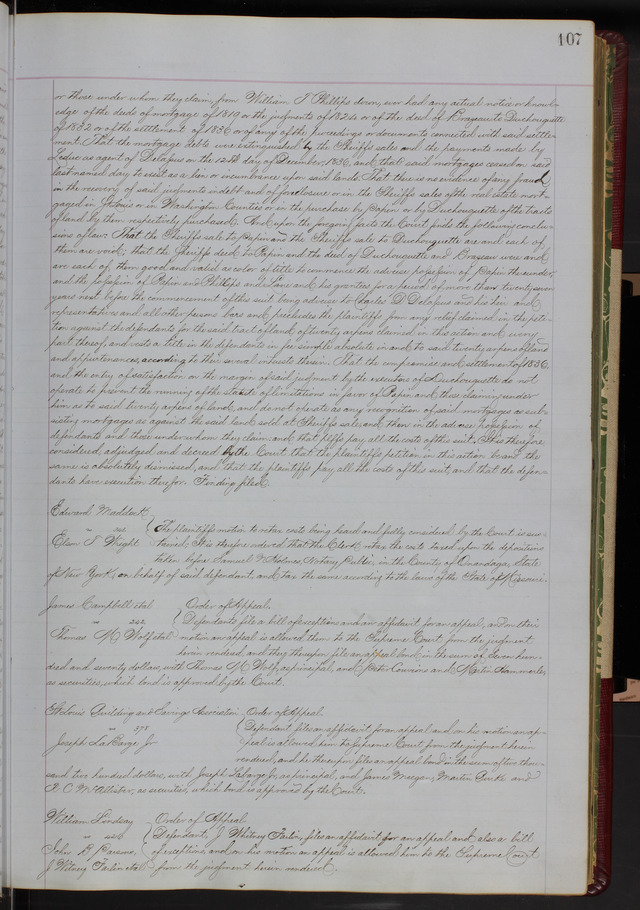 107
or those under whom they claim, from William T Phillips down, ever had any actual notice or knowl-
edge of the deeds of mortgage of 1819 or the judgments of 1824 or of the deed of Brazeau to Duchouquette
of 1832 or of the settlement of 1836 or of any of the proceedings or documents connected with said settle-
ment. That the mortgage debts were extinguished by the Sheriffs sales and the payments made by
Leduc as agent of Delassus on the 12th day of December, 1836, and that said mortgages ceased on said
last named day to exist as a lien or incumbrance upon said lands. That there is no evidence of any fraud
in the recovery of said judgments in debt and of foreclosure or in the Sheriffs sales of the real estate mort-
gaged in St Louis or in Washington Counties or in the purchase by Papin or by Duchouquette of the tracts
of land by them respectively purchased. And upon the foregoing facts the Court finds the following conclu-
sions of law: That the Sheriffs sale to Papin and the Sheriffs sale to Duchouquette are and each of
them are void; that the Sheriffs deed to Papin and the deed of Duchouquette and Brazeau were and
are each of them good and valid as color of title to commence the adverse possession of Papin thereunder,
and the possession of Papin and Phillips and Lowe and his grantees for a period of more than twenty seven
years next before the commencement of this suit being adverse to Charles D Delassus and his heirs and
representatives and all other persons bars and precludes the plaintiffs from any relief claimed in the peti-
tion against the defendants for the said tract of land of twenty arpens claimed in this action and every
part thereof, and vests a title in the defendants in fee simple absolute in and to said twenty arpens of land
and appurtenances, according to their several interests therein. That the compromise and settlement of 1836,
and the entry of satisfaction on the margin of said judgment by the executors of Duchouquette do not
operate to prevent the running of the statute of limitations in favor of Papin and those claiming under
him as to said twenty arpens of land, and do not operate as any recognition of said mortgages as sub-
sisting mortgages as against the said land sold at Sheriffs sales and then in the adverse possession of
defendants and those under whom they claim and that plffs pay all the costs of this suit. It is therefore
considered, adjudged and decreed by the Court that the plaintiffs petition in this action be and the
same is absolutely dismissed, and that the plaintiffs pay all the costs of this suit, and that the defen-
dants have execution therefor. Finding filed.
Edward Maddock
vs The plaintiffs motion to retax costs being heard and fully considered by the Court is sus-
Elson T Wright tained. It is therefore ordered that the Clerk retax the costs taxed upon the depositions
taken before Samuel N Holmes, Notary Public, in the County of Onandaga, State
of New York, on behalf of said defendant, and tax the same according to the laws of the State of Missouri.
James Campbell et al Order of Appeal.
vs 242 Defendants file a bill of exceptions and an affidavit for an appeal, and on their
Thomas M Wolf et al motion an appeal is allowed them to the Supreme Court from the judgment
herein rendered, and they thereupon file an appeal bond in the sum of Seven hun-
dred and seventy dollars, with Thomas M Wolf, as principal, and Peter Cousins and Martin Hammerle,
as securities, which bond is approved by the Court.
St Louis Building and Savings Association Order of Appeal.
vs 378 Defendant files an affidavit for an appeal and on his motion an ap-
Joseph LaBarge Jr peal is allowed him to Supreme Court from the judgment herein
rendered, and he thereupon files an appeal bond in the sum of two thou-
sand two hundred dollars, with Joseph LaBarge Jr, as principal, and James Meegan, Martin Burke and
D. C. McAllister, as securities, which bond is approved by the Court.
William Lindsay Order of Appeal.
vs 426 Defendant, J Whitney Farlin, files an affidavit for an appeal and also a bill
John D Parsons, of exceptions, and on his motion an appeal is allowed him to the Supreme Court
J Witney Farlin et al from the judgment herein rendered.